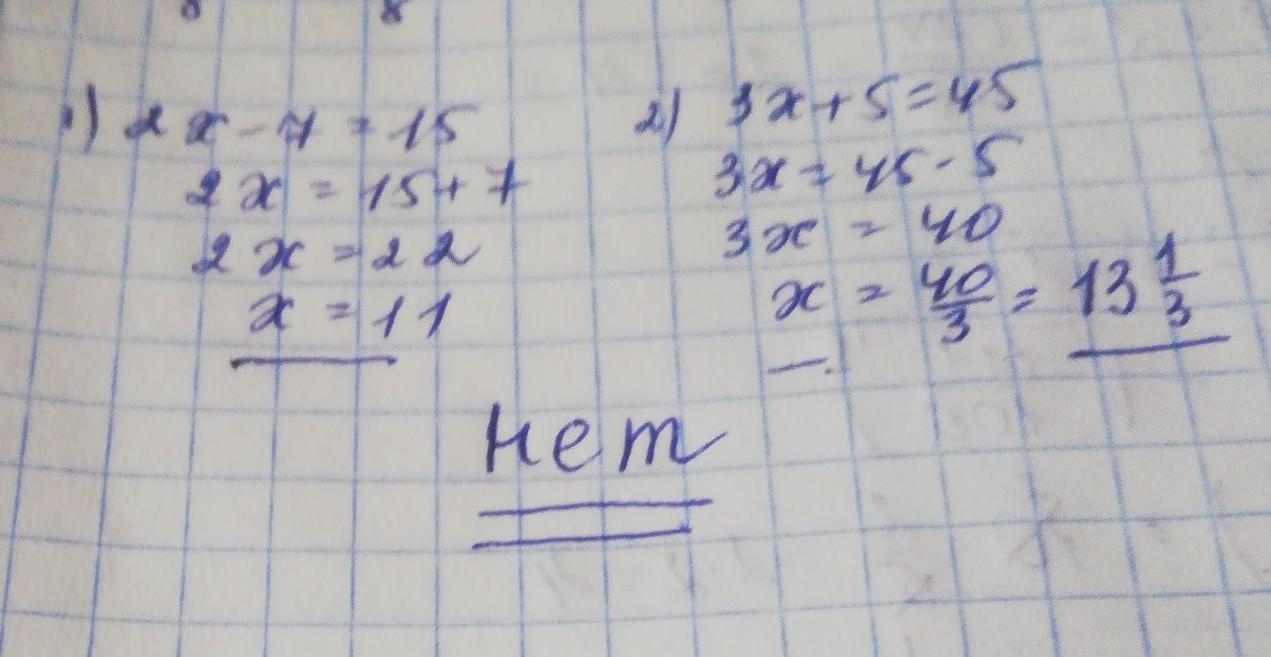 1) 2x - 7 = 15
2x = 15 + 7
2x = 22
x = 11
2) 3x + 5 = 45
3x = 45 - 5
3x = 40
x = 40/3 = 13 1/3
нет